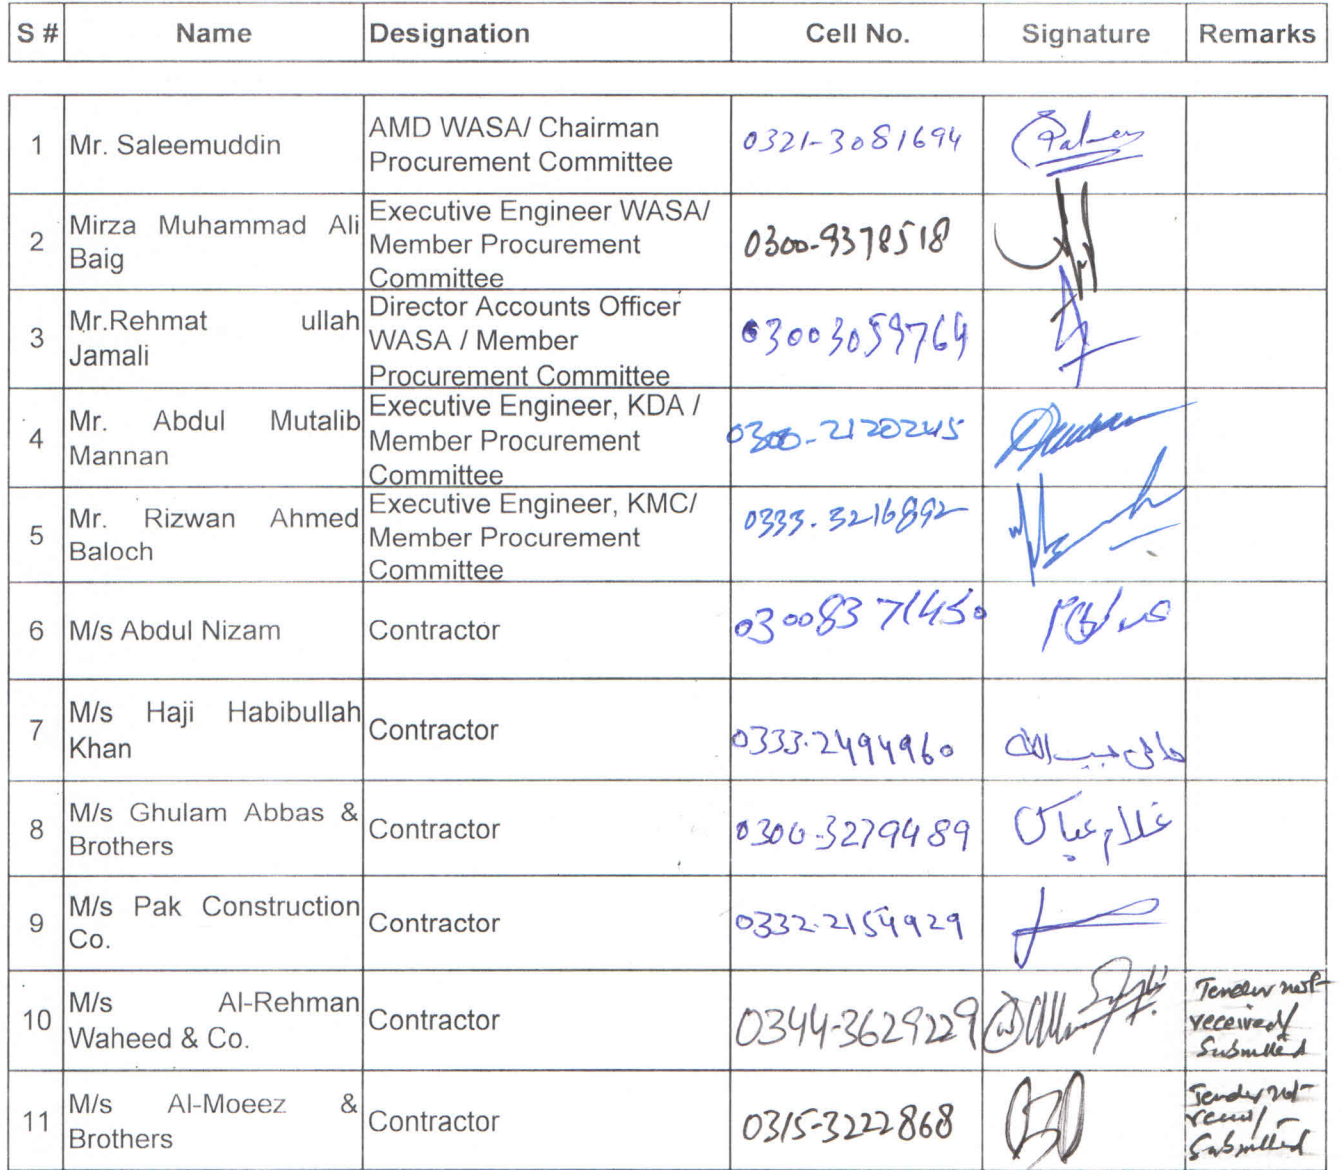 S # Name Designation Cell No. Signature Remarks
1 Mr. Saleemuddin AMD WASA/ Chairman Procurement Committee 0321-3081694
2 Mirza Muhammad Ali Baig Executive Engineer WASA/ Member Procurement Committee 0300-9378518
3 Mr.Rehmat ullah Jamali Director Accounts Officer WASA / Member Procurement Committee 03003059764
4 Mr. Abdul Mutalib Mannan Executive Engineer, KDA / Member Procurement Committee 0300-2120245
5 Mr. Rizwan Ahmed Baloch Executive Engineer, KMC/ Member Procurement Committee 0333-3216892
6 M/s Abdul Nizam Contractor 03008371450
7 M/s Haji Habibullah Khan Contractor 0333-2494960 حاجی حبیب اللہ
8 M/s Ghulam Abbas & Brothers Contractor 0300-3279489 غلام عباس
9 M/s Pak Construction Co. Contractor 0332-2154929
10 M/s Al-Rehman Waheed & Co. Contractor 0344-3629229 Tender not received/ Submitted
11 M/s Al-Moeez & Brothers Contractor 0315-3222868 Tender not / Submitted